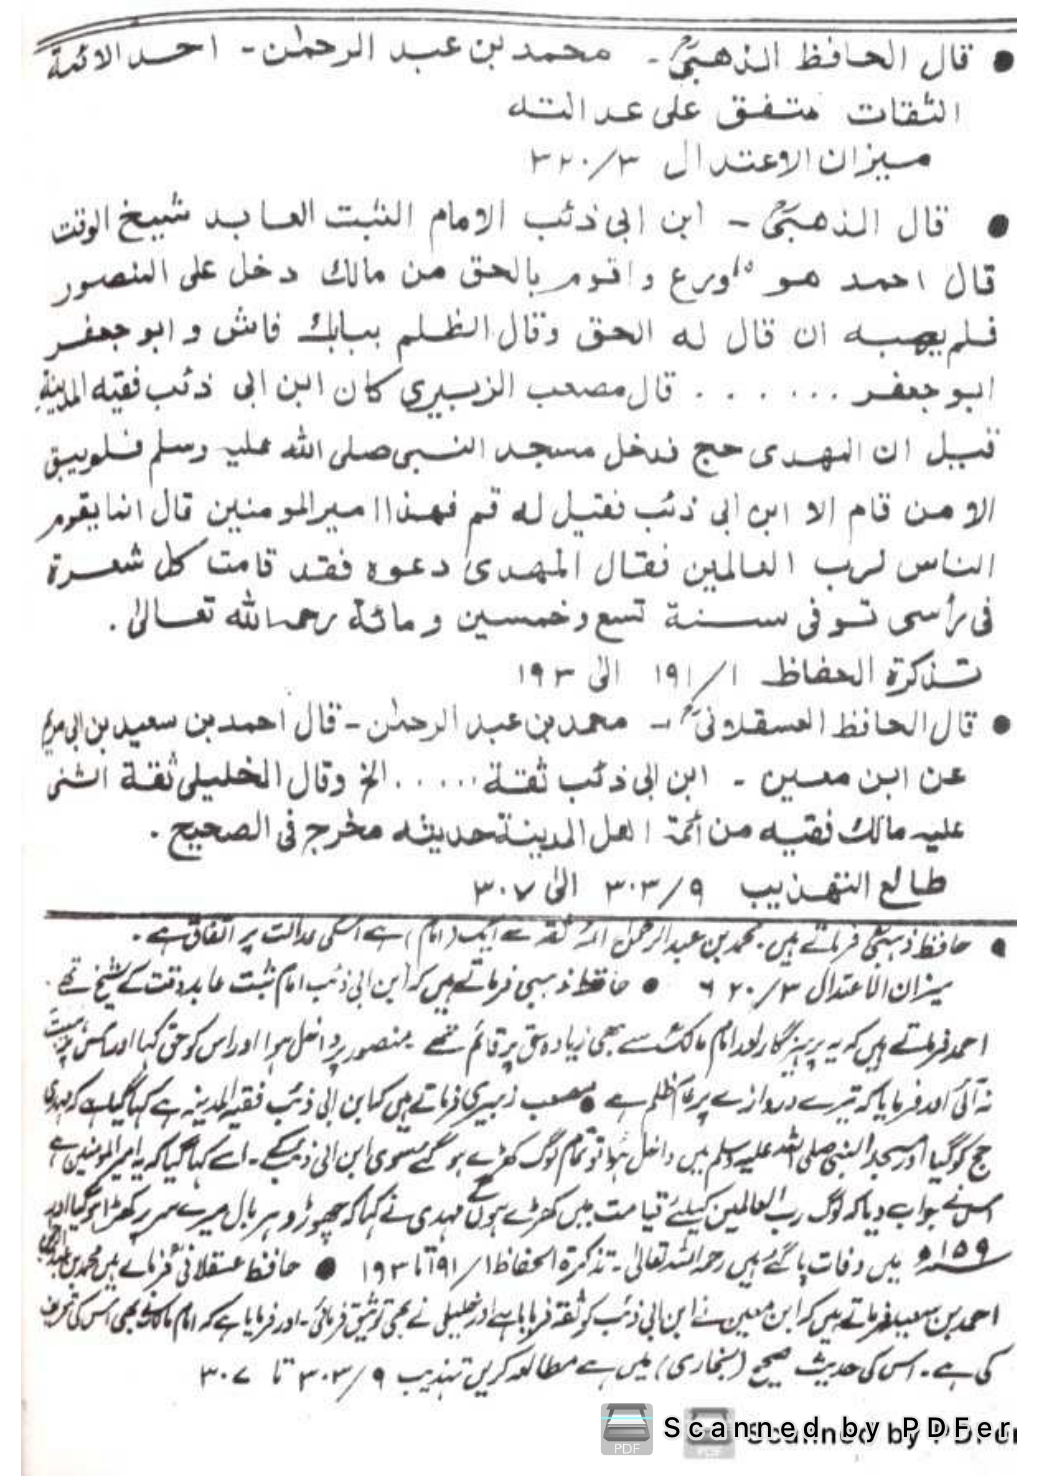 ● قال الحافظ الذهبیؒ ۔ محمد بن عبد الرحمٰن ۔ احد الائمة
الثقات متفق علی عدالته
میزان الاعتدال ۳/۳۲۰
● قال الذهبیؒ ۔ ابن ابی ذئب الامام الثبت العابد شیخ الوقت
قال احمد هو اورع و اقوم بالحق من مالك دخل علی المنصور
فلم یهبه ان قال له الحق وقال الظلم ببابك فاش و ابو جعفر
ابو جعفر ...... قال مصعب الزبیری کان ابن ابی ذئب فقیه المدینة
قیل ان المهدی حج فدخل مسجد النبی صلی الله علیه وسلم فلم یبق
الا من قام الا ابن ابی ذئب فقیل له قم فهذا امیر المومنین قال انما یقوم
الناس لرب العالمین فقال المهدی دعوه فقد قامت كل شعرة
فی رأسی توفی سنة تسع وخمسین و مائة رحمه الله تعالیٰ .
تذكرة الحفاظ ۱/۱۹۱ الیٰ ۱۹۳
● قال الحافظ العسقلانیؒ ۔ محمد بن عبد الرحمٰن ۔ قال احمد بن سعید بن ابی مریم
عن ابن معین ۔ ابن ابی ذئب ثقة ..... الخ وقال الخلیلی ثقة اثنی
علیه مالك فقیه من أئمة اهل المدینة حدیثه مخرج فی الصحیح .
طالع التهذیب ۹/۳۰۳ الیٰ ۳۰۷
● حافظ ذہبیؒ فرماتے ہیں۔ محمد بن عبدالرحمٰن ائمہ ثقہ سے ایک (امام) ہے اسکی عدالت پر اتفاق ہے۔
میزان الاعتدال ۳/۶۲۰ ● حافظ ذہبی فرماتے ہیں کہ ابن ابی ذئب امام ثبت عابد وقت کے شیخ تھے۔
احمد فرماتے ہیں کہ یہ پرہیزگار اور امام مالکؒ سے بھی زیادہ حق پر قائم تھے منصور پر داخل ہوا اور اس کو حق کہا اور اس پر ہیبت
نہ آئی اور فرمایا کہ تیرے دروازے پر عام ظلم ہے ● مصعب زبیری فرماتے ہیں کہ ابن ابی ذئب فقیہ المدینہ ہے کہا گیا ہے کہ مہدی
حج کو گیا اور مسجد النبی صلی اللہ علیہ وسلم میں داخل ہوا تو تمام لوگ کھڑے ہو گئے سوی ابن ابی ذئب کے۔ اسے کہا گیا کہ یہ امیر المومنین ہے
اس نے جواب دیا کہ لوگ رب العالمین کیلئے قیامت میں کھڑے ہوں گے مہدی نے کہا کہ چھوڑو ہر بال میرے سر پر کھڑا ہو گیا اور
۱۵۹ھ میں وفات پا گئے ہیں رحمہ اللہ تعالیٰ۔ تذکرۃ الحفاظ ۱/۱۹۱ تا ۱۹۳ ● حافظ عسقلانیؒ فرماتے ہیں محمد بن عبدالرحمٰن
احمد بن سعید فرماتے ہیں کہ ابن معین نے ابن ابی ذئب کو ثقہ فرمایا ہے اور خلیلی نے بھی توثیق فرمائی۔ اور فرمایا ہے کہ امام مالکؒ نے بھی اس کی تعریف
کی ہے۔ اس کی حدیث صحیح (بخاری) میں ہے مطالعہ کریں تہذیب ۹/۳۰۳ تا ۳۰۷
PDF Scanned by PDFer
PDF Scanned by PDFer